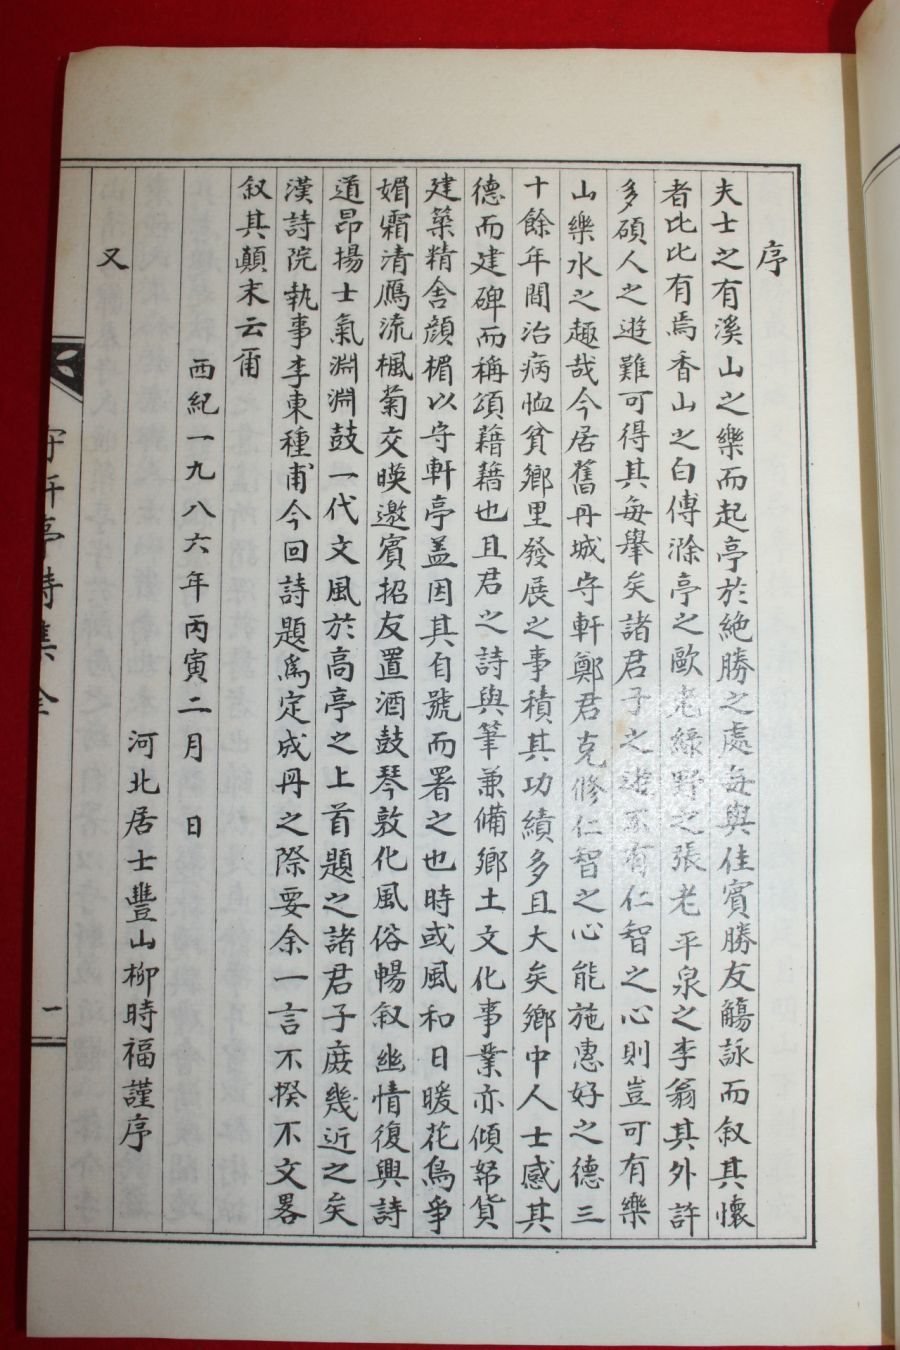 序
夫士之有溪山之樂而起亭於絶勝之處每與佳賓勝友觴詠而叙其懷
者比比有焉香山之白傅滁亭之歐老綠野之張老平泉之李翁其外許
多碩人之遊難可得其每擧矣諸君子之遊不有仁智之心則豈可有樂
山樂水之趣哉今居舊丹城守軒鄭君克修仁智之心能施惠好之德三
十餘年間治病恤貧鄉里發展之事積其功績多且大矣鄉中人士感其
德而建碑而稱頌藉藉也且君之詩與筆兼備鄉土文化事業亦傾帑貨
建築精舍顔楣以守軒亭盖因其自號而署之也時或風和日暖花鳥爭
媚霜清鴈流楓菊交暎邀賓招友置酒鼓琴敦化風俗暢叙幽情復興詩
道昂揚士氣淵淵鼓一代文風於高亭之上首題之諸君子庶幾近之矣
漢詩院執事李東種甫今回詩題爲定成丹之際要余一言不揆不文畧
叙其顛末云爾
西紀一九八六年丙寅二月　日
河北居士豐山柳時福謹序
又
守軒亭詩集全
一